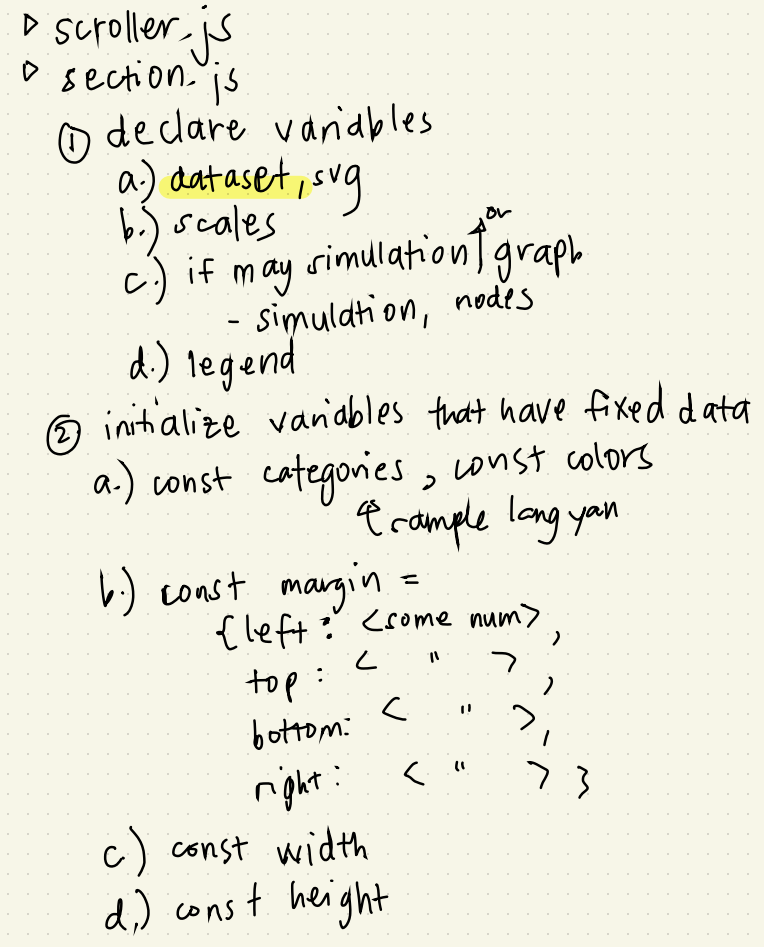 ▷ scroller.js
▷ section.js
① declare variables
a.) dataset, svg
b.) scales
or
c.) if may simulation↑graph
- simulation, nodes
d.) legend
② initialize variables that have fixed data
a.) const categories, const colors
↑ sample lang yan
b.) const margin =
{left: <some num>,
top: < " >,
bottom: < " >,
right: < " > }
c) const width
d.) const height